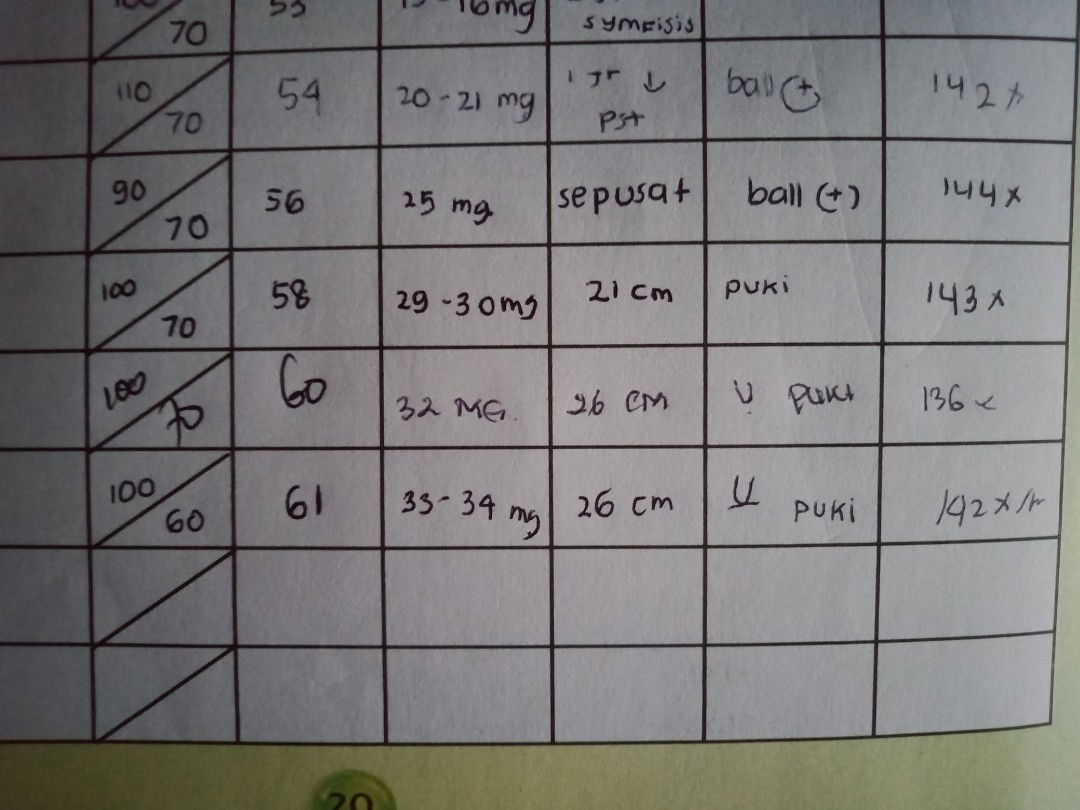 70 53 16 mg symfisis
110/70 54 20-21 mg 1 jr ↓ pst ball (+) 142 x
90/70 56 25 mg sepusat ball (+) 144 x
100/70 58 29-30 mg 21 cm puki 143 x
100/70 60 32 MG. 26 cm puki 136 x
100/60 61 33-34 mg 26 cm puki 142 x/m
20